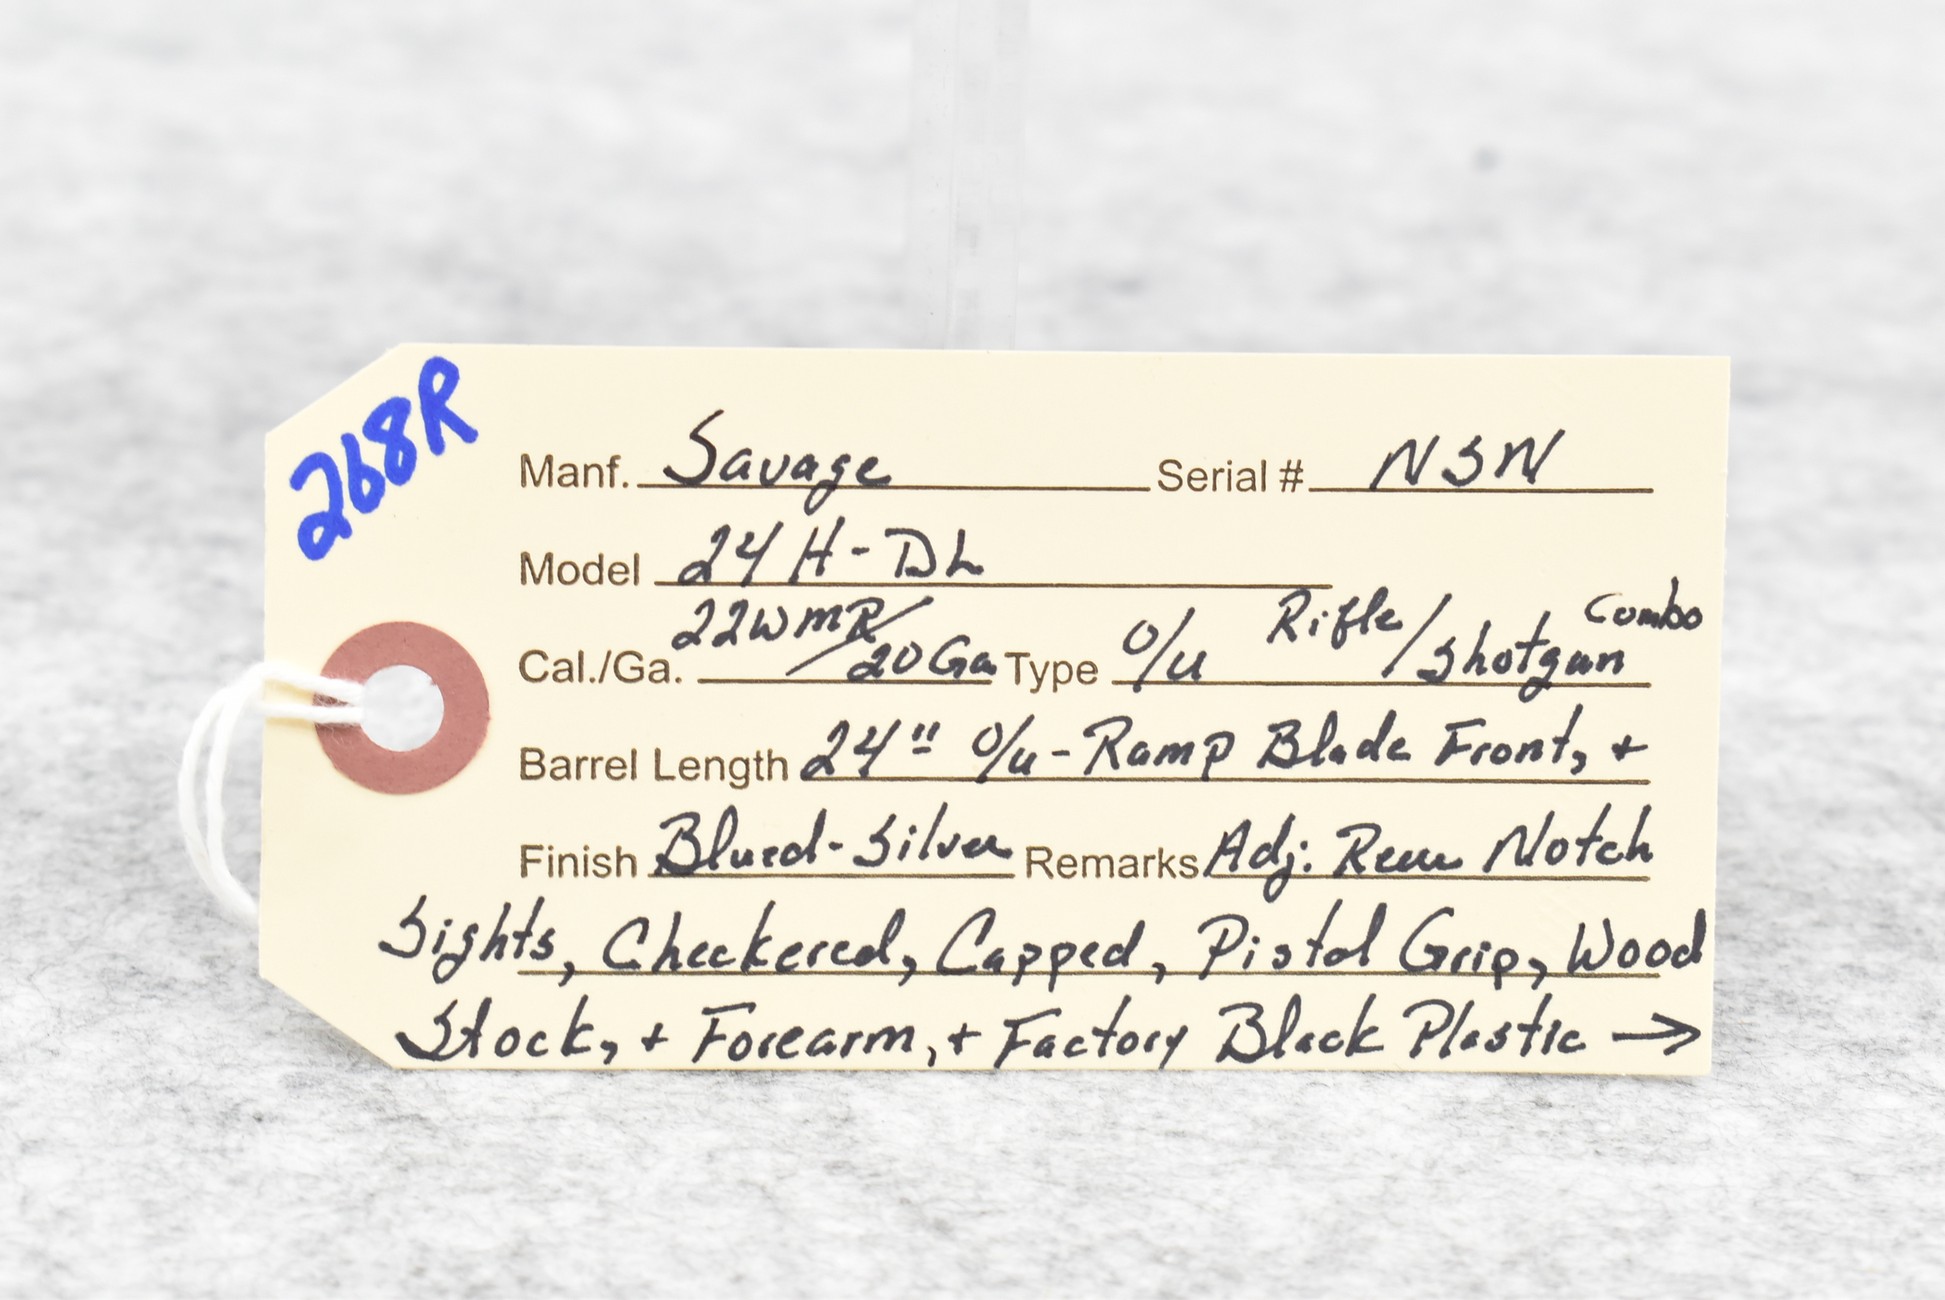 268R
Manf. Savage Serial # NSN
Model 24 H-DL
Cal./Ga. 22WMR/20Ga Type O/u Rifle/Shotgun Combo
Barrel Length 24" O/u-Ramp Blade Front, +
Finish Blued-Silver Remarks Adj. Rear Notch
Sights, Checkered, Capped, Pistol Grip, Wood
Stock, + Forearm, + Factory Black Plastic →